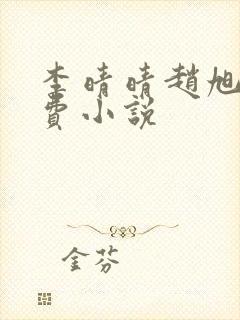 李晴晴趙旭
費小說
金芬